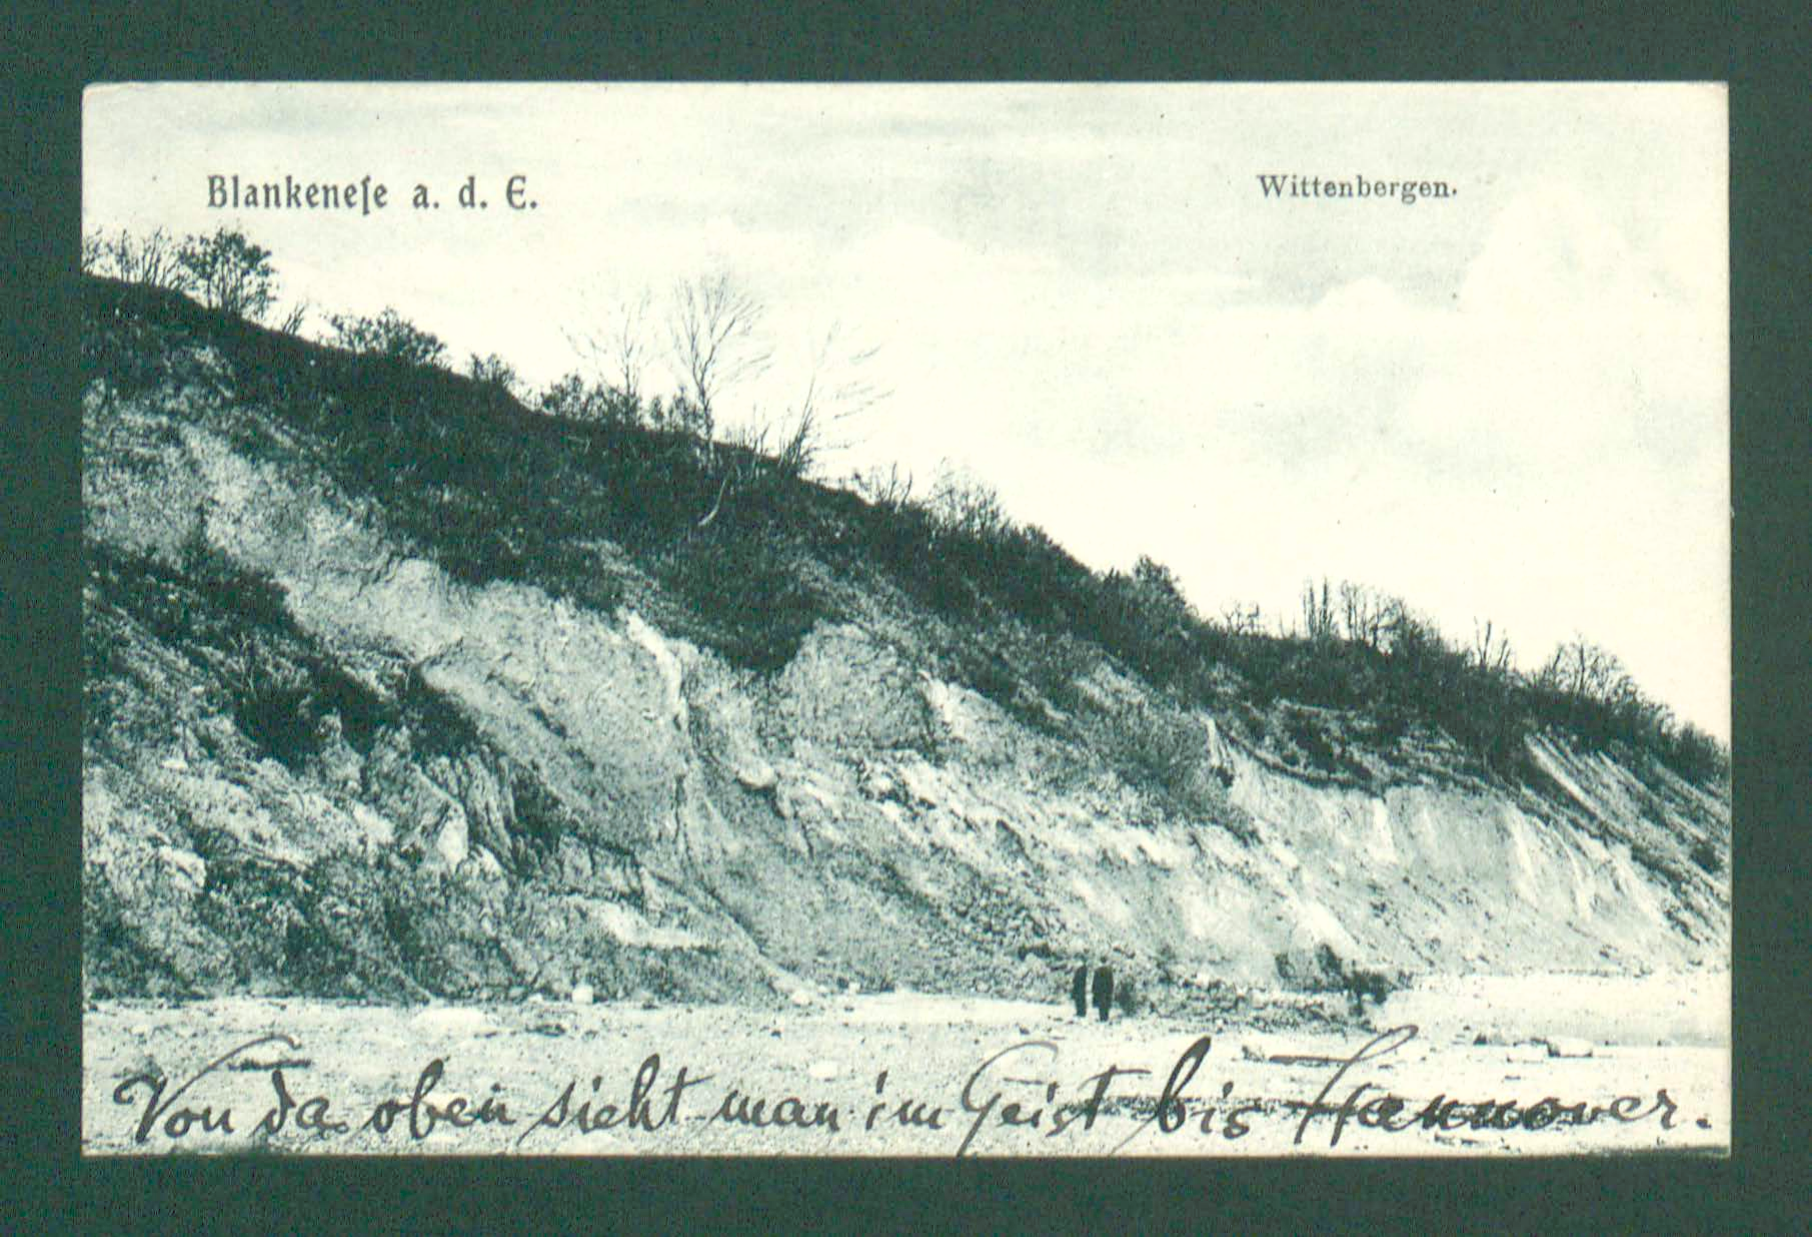 Blankeneſe a. d. E.
Wittenbergen.
Von da oben sieht man im Geist bis Hannover.